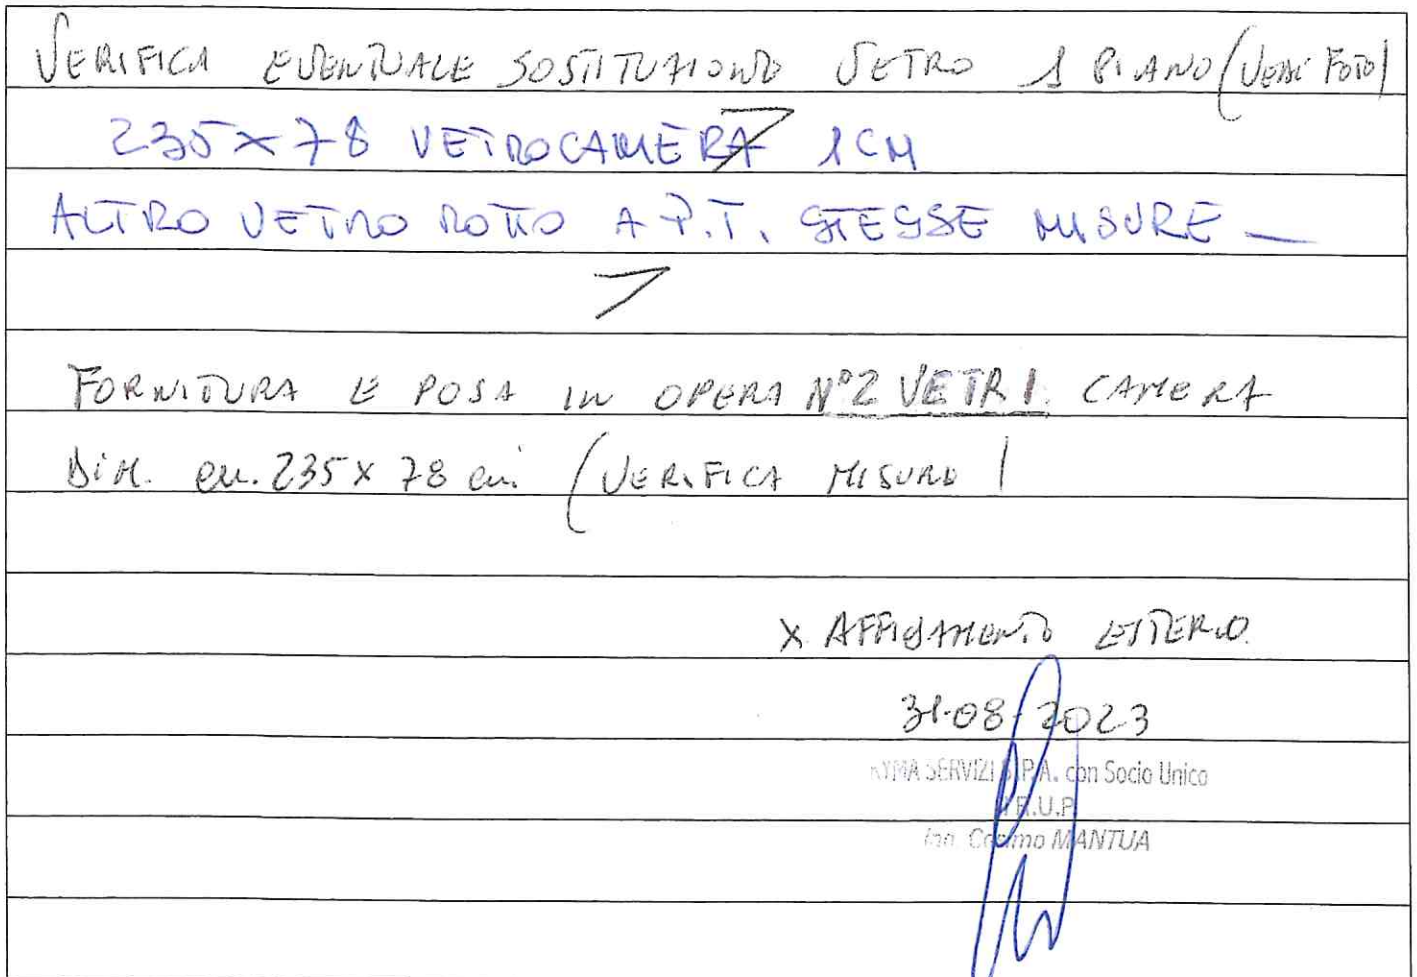 VERIFICA EVENTUALE SOSTITUZIONE VETRO 1 PIANO (VEDI FOTO)
235x78 VETROCAMERA 1CM
ALTRO VETRO ROTTO A P.T. STESSE MISURE -
FORNITURA E POSA IN OPERA N°2 VETRI CAMERA
DIM. cm. 235 x 78 cm. (VERIFICA MISURE)
X AFFIDAMENTO ESTERNO.
31-08-2023
KYMA SERVIZI S.P.A. con Socio Unico
R.U.P.
Ing. Cosimo MANTUA